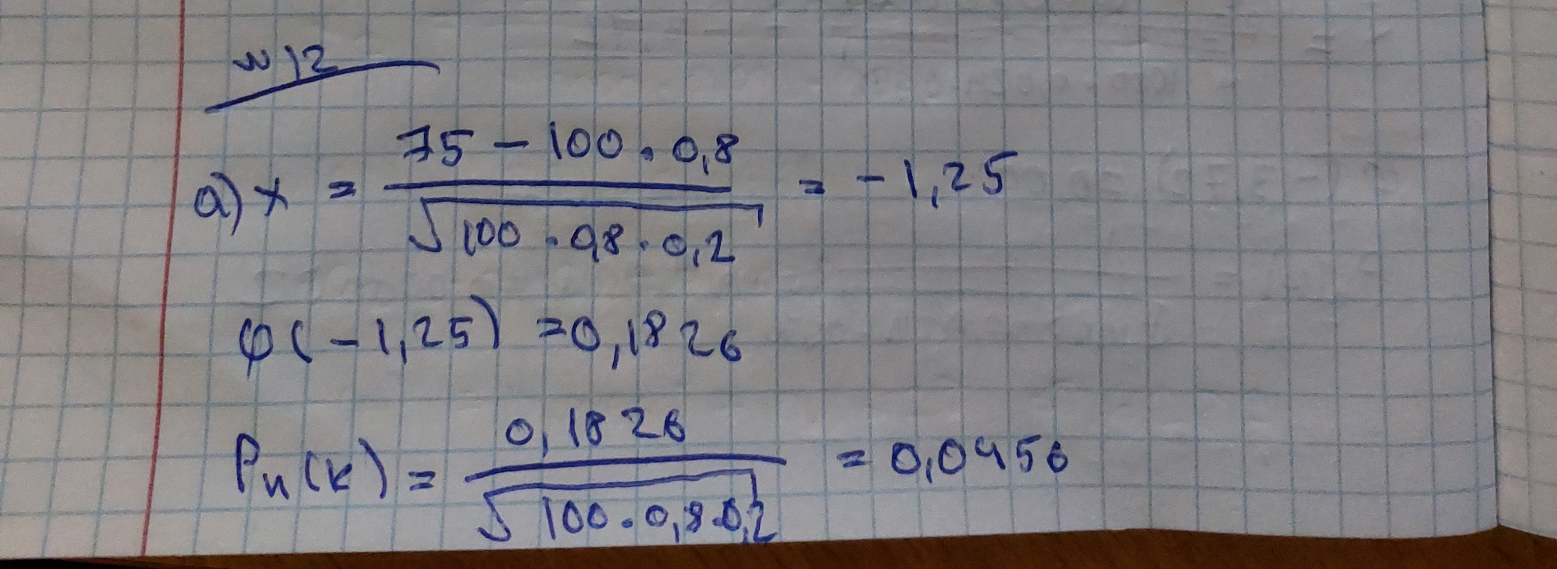 №12
а) x = (75 - 100 · 0,8) / √(100 · 0,8 · 0,2) = -1,25
φ(-1,25) = 0,1826
Pn(k) = 0,1826 / √(100 · 0,8 · 0,2) = 0,0456